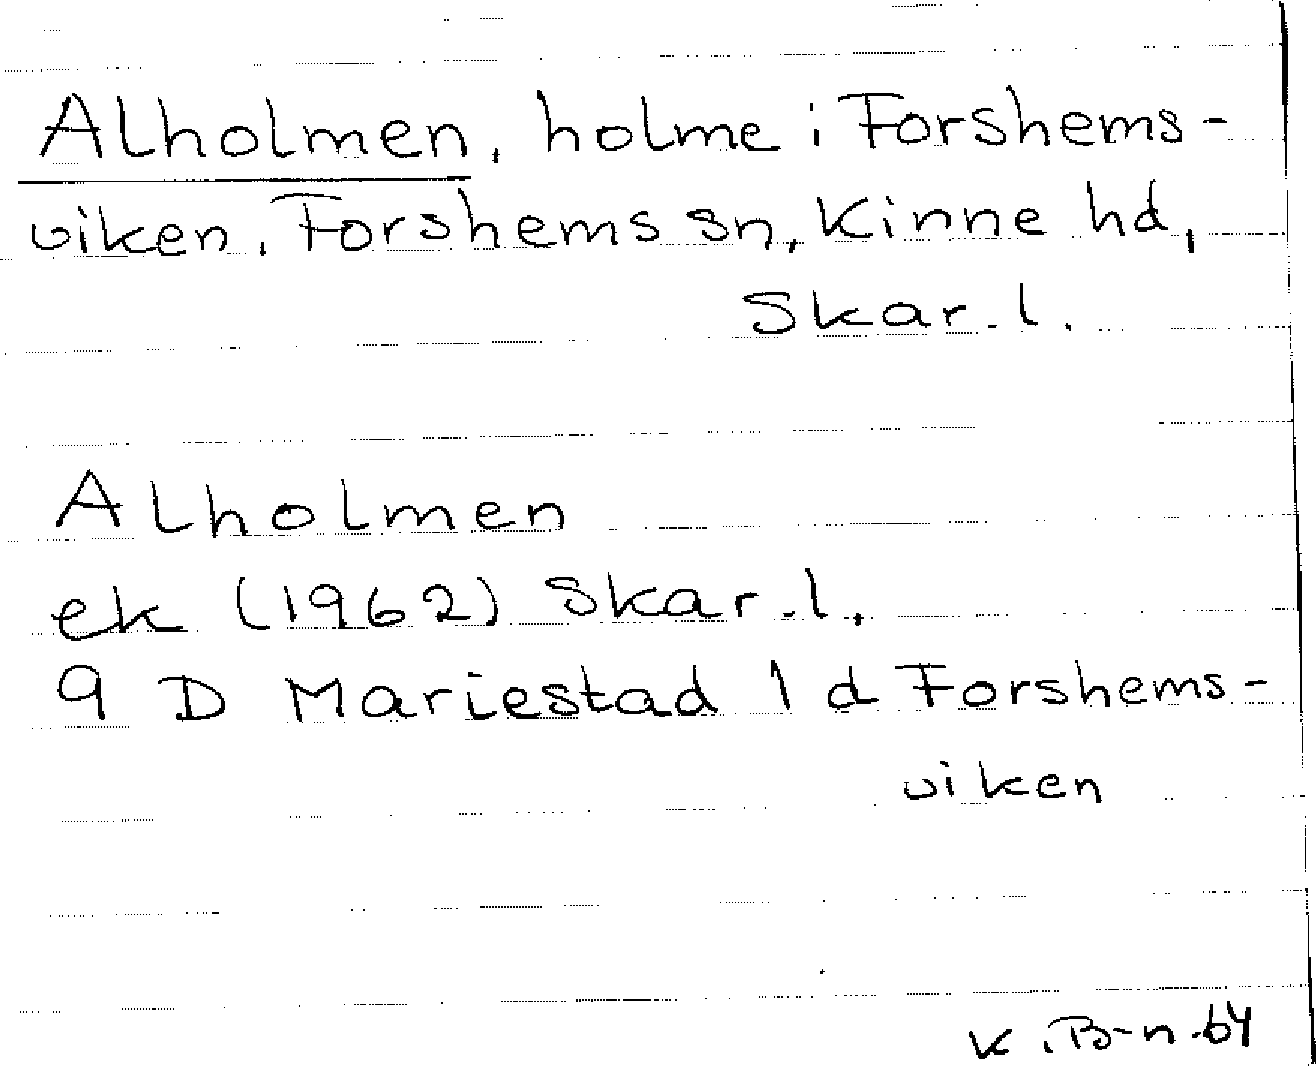 Alholmen, holme i Forshems-
viken. Forshems sn, Kinne hd,
Skar. l.
Alholmen
ek (1962) Skar. l.
9 D Mariestad 1 d Forshems-
viken
K. B-n. 64